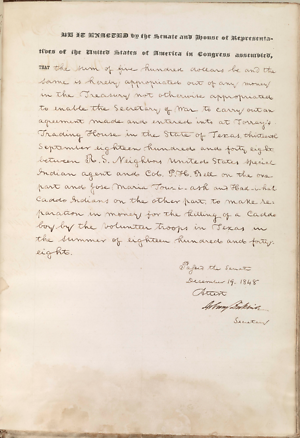 BE IT ENACTED by the Senate and House of Representa-
tives of the United States of America in Congress assembled,
THAT the sum of five hundred dollars be and the
same is hereby appropriated out of any money
in the Treasury not otherwise appropriated
to enable the Secretary of War to carry out an
agreement made and entered into at Torrey's
Trading House in the State of Texas
September eighteen hundred and forty eight
between R. S. Neighbors United States Special
Indian agent and Col. P. H. Bell on the one
part and Jose Maria and Had-i-bat
Caddo Indians on the other part, to make re-
paration in money for the killing of a Caddo
boy by the volunteer troops in Texas in
the summer of eighteen hundred and forty-
eight.
Passed the Senate
December 19, 1848
Attest
Asbury Dickins
Secretary